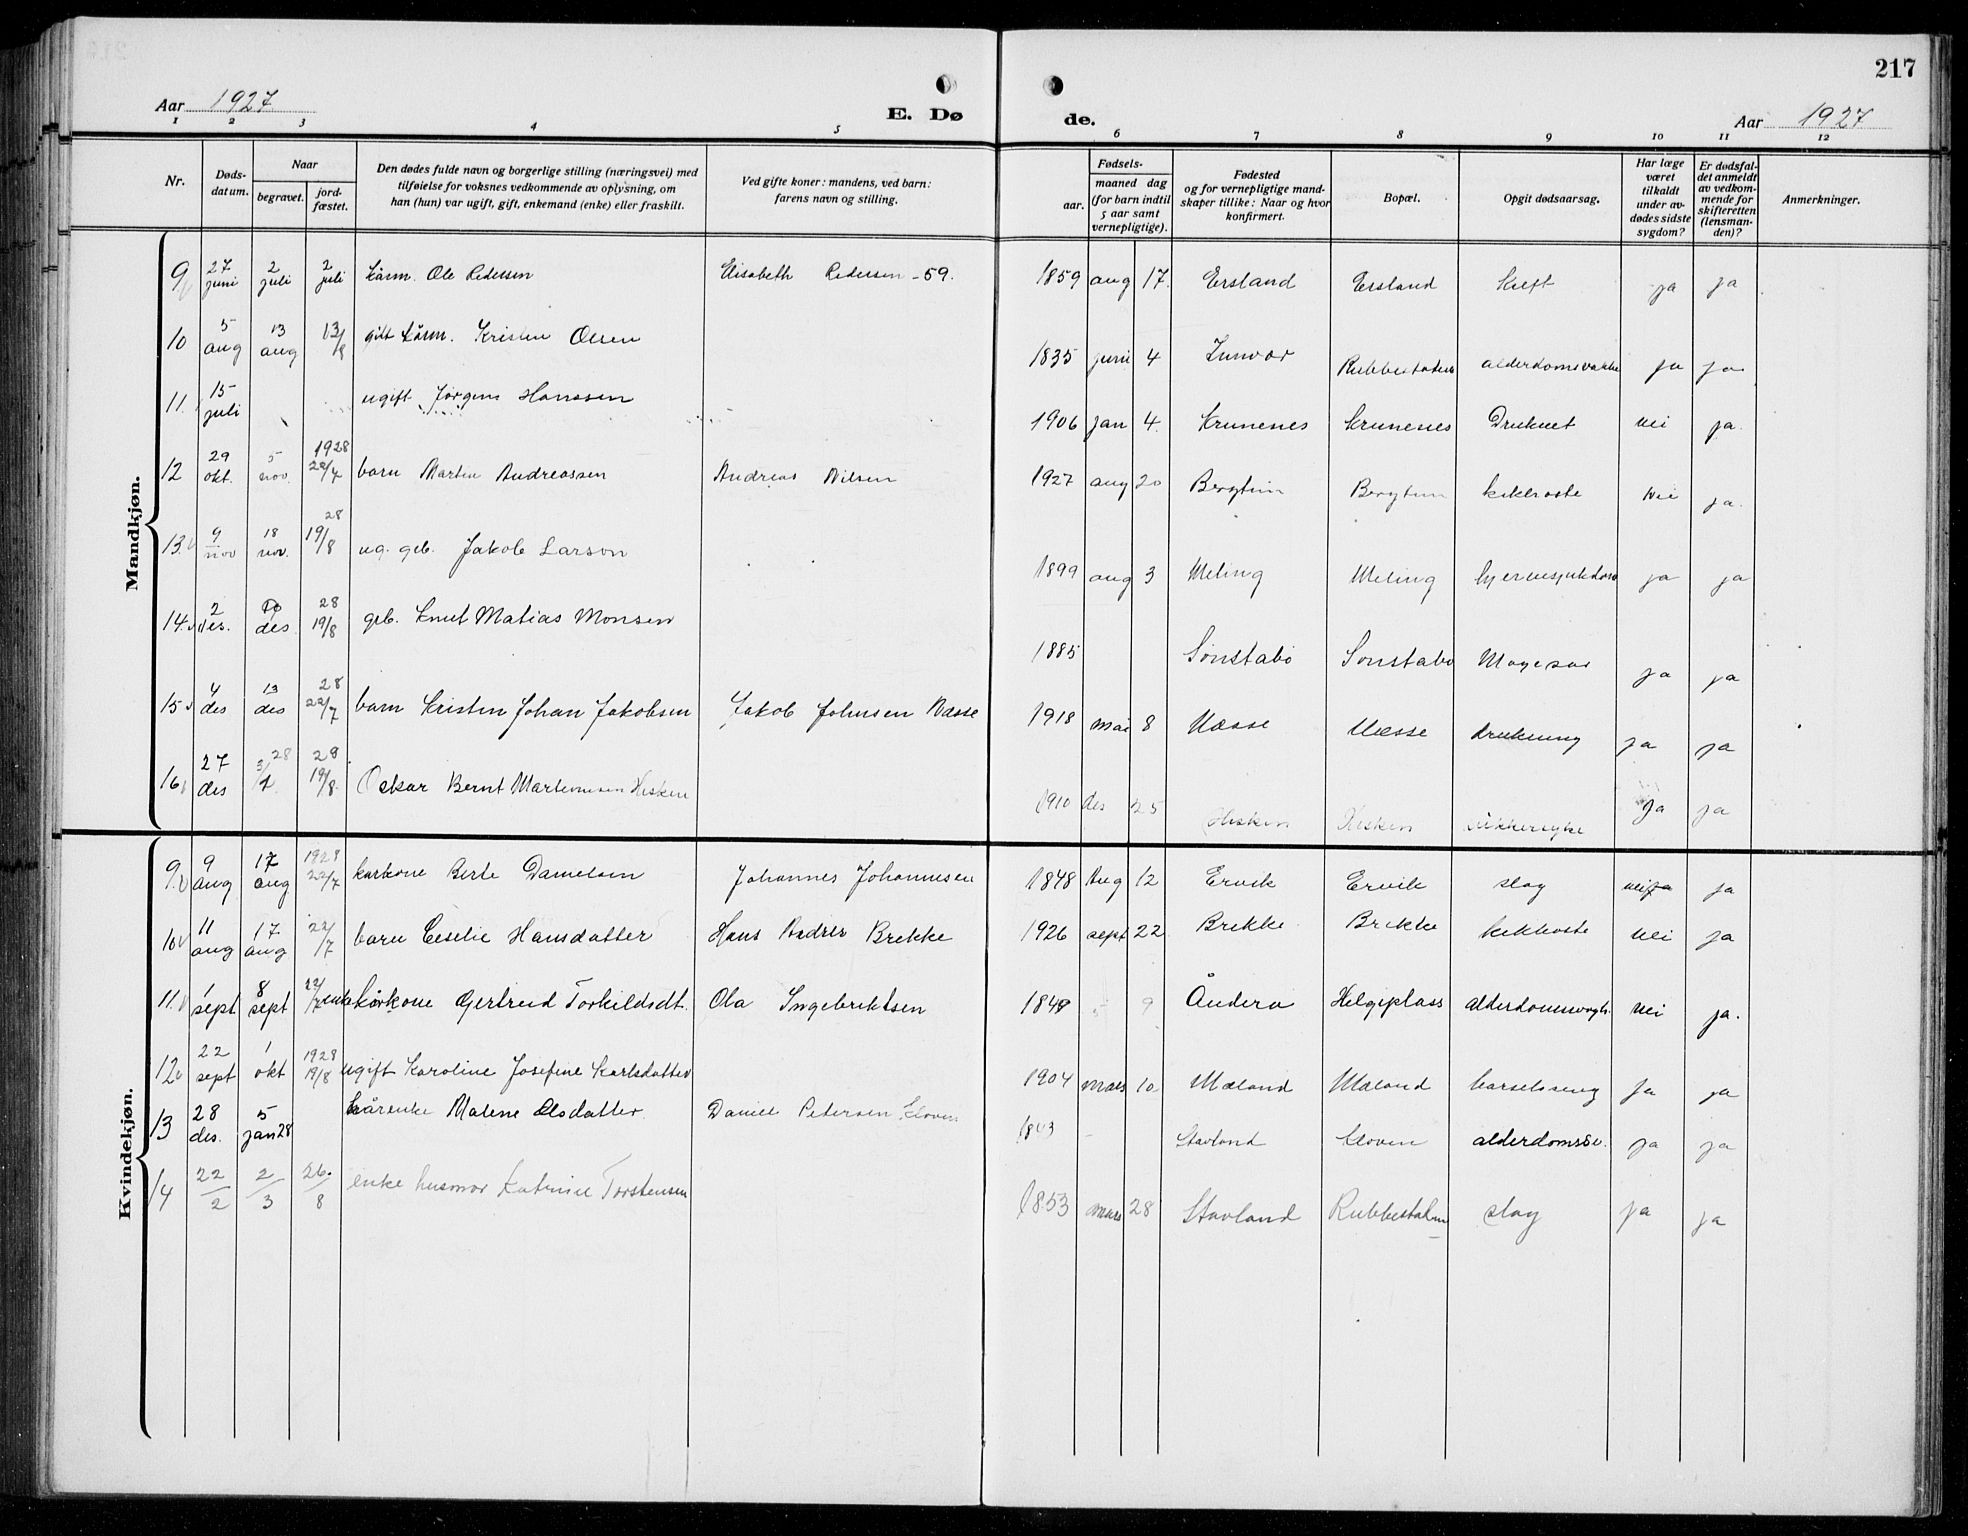 217
Aar 1927
E. Døde.
Aar 1927
1 2 3 4 5 6 7 8 9 10 11 12
Nr.
Døds-datum.
Naar
begravet.
jord-fæstet.
Den dødes fulde navn og borgerlige stilling (næringsvei) med
tilføielse for voksnes vedkommende av oplysning, om
han (hun) var ugift, gift, enkemand (enke) eller fraskilt.
Ved gifte koner: mandens, ved barn:
farens navn og stilling.
Fødsels-
aar.
maaned dag
(for barn indtil
5 aar samt
vernepligtige).
Fødested
og for vernepligtige mand-
skaper tillike: Naar og hvor
konfirmert.
Bopæl.
Opgit dødsaarsag.
Har læge
været
tilkaldt
under av-
dødes sidste
sygdom?
Er dødsfal-
det anmeldt
av vedkom-
mende for
skifteretten
(lensman-
den)?
Anmerkninger.
Mandkjøn.
9 27 juni 2 juli 2 juli kårm. Ole Pedersen Elisabeth Pedersen -59. 1859 aug 17. Ersland Ersland Kreft ja ja
10 5 aug 13 aug 13/8 gift kårm. Kristen Olsen 1835 juni 4 Rubbestaden ja ja
11. 15 juli ugift Jørgen Hanssen 1906 jan 4. Krunenes Krunenes Druknet nei ja.
12 29 okt. 5 nov. 1928 22/7 barn Martin Andreassen Andreas Nilsen 1927 aug 20 Bergtun Bergtun kikhoste nei ja.
13. 9 nov 18 nov. 28 19/8 ug. geb. Jakob Larson 1899 aug 3 Meling Meling ja ja
14. 2 des. des 28 19/8 grb. Knut Matias Monsen 1885 Sønstabø Sønstabø Magesår ja ja
15 4 des 13 des 28 22/7 barn Kristen Johan Jakobsen Jakob Johnsen Næsse 1918 mai 8 Næsse Næsse drukning ja ja
16 27 des 28 3/1 28 19/8. Oskar Bernt Martinusen Hisken 1910 des 25 Hisken Hisken sukkersyke ja ja
Kvindekjøn.
9. 9 aug 17 aug 1928 22/7 kårkone Berte Danielsen Johannes Johannesen 1848 Aug 12 Ervik Ervik slag ja ja
10 11 aug 17 aug 22/7 barn Ceselie Hansdatter Hans Andres Brekke 1926 sept 22 Brekke Brekke kikhoste nei ja
11. 1 sept 8 sept 22/7 enke kårkone Gjertrud Torkildsdt. Ola Ingebriktsen 1849 5 9 Helgiplass nei ja.
12 22 sept 1 okt 1928 19/8 ugift Karoline Josefine Karlsdatter 1904 mars 10 Mæland Mæland barselseng ja ja
13 28 des. 5 jan 28 kårenke Malene Olsdatter Daniel Petersen Kloven 1843 - Stavland Kloven alderdomssv. ja ja
14 22/2 2/3 26/8 enke husmor Katrine Torstensen 1853 mars 28 Stavland Rubbestaden slag ja ja